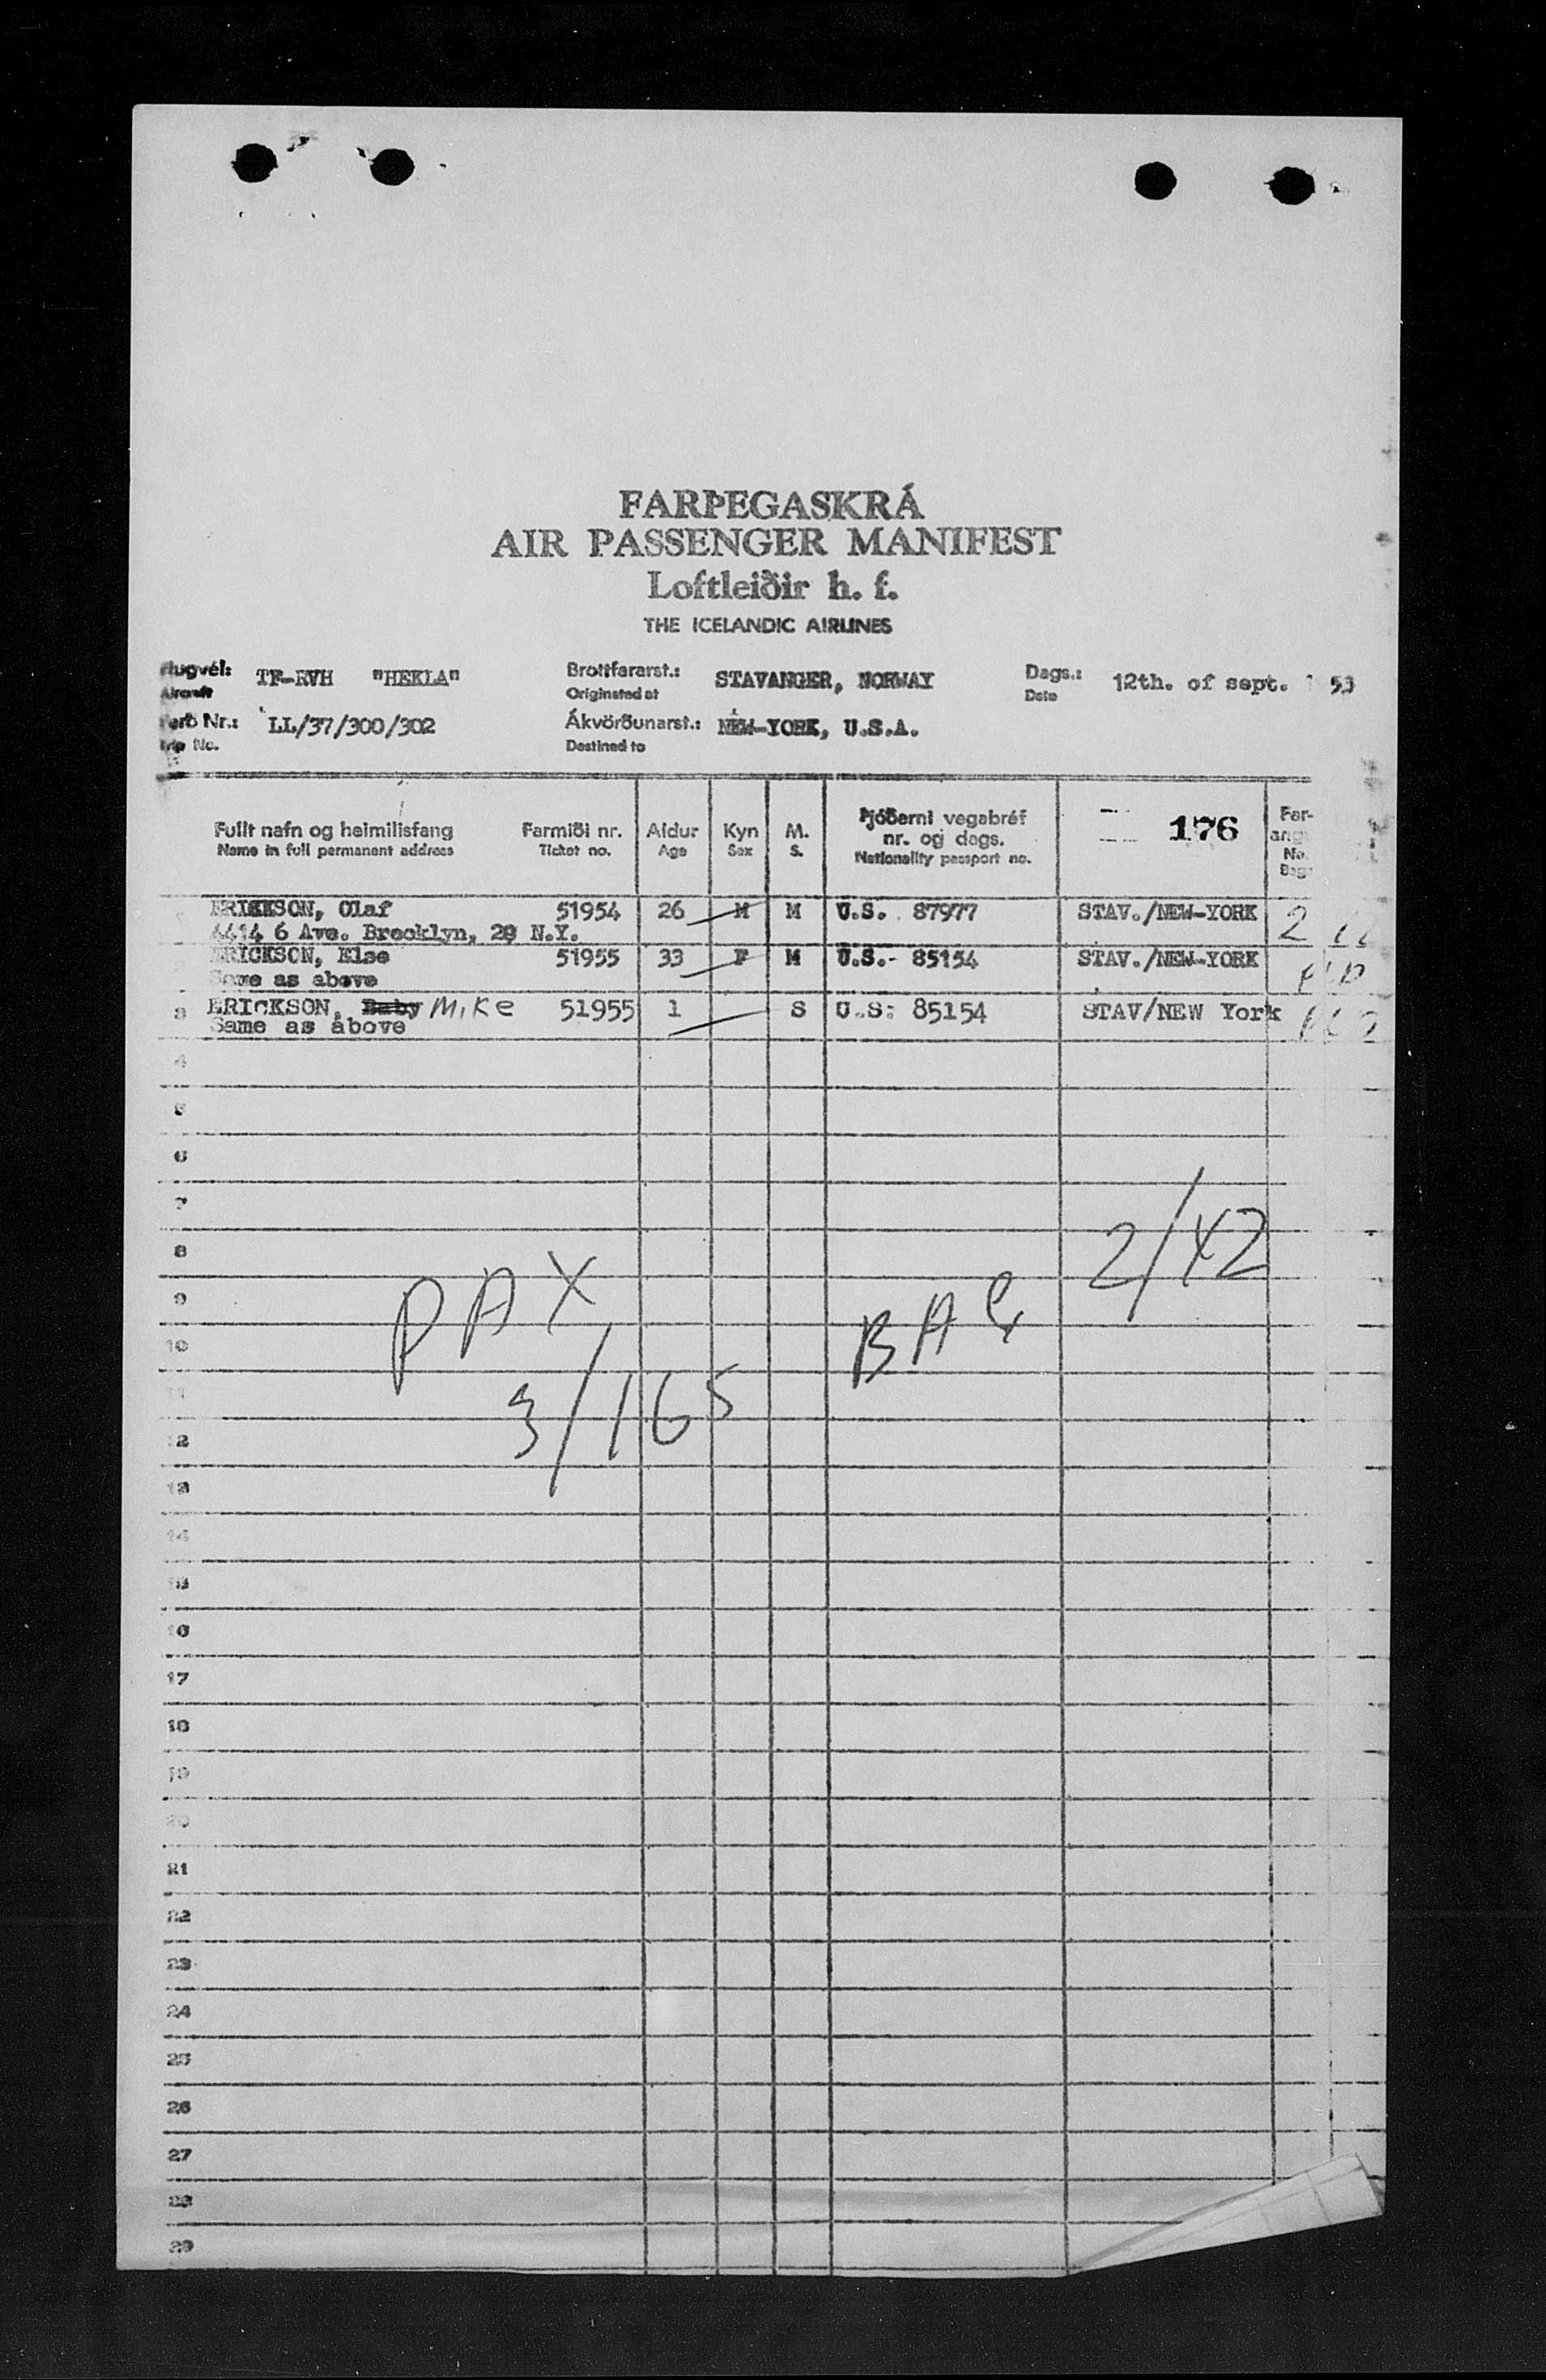 FARÞEGASKRÁ
AIR PASSENGER MANIFEST
Loftleiðir h. f.
THE ICELANDIC AIRLINES
Flugvél: TF-RVH "HEKLA" Brottfararst.: STAVANGER, NORWAY Dags.: 12th. of sept. 1 53
Aircraft Originated at Date
Ferð Nr.: LL/37/300/302 Ákvörðunarst.: NEW-YORK, U.S.A.
Trip No. Destined to
Fullt nafn og heimilisfang Farmiði nr. Aldur Kyn M. Þjóðerni vegabréf nr. og dags. 176 Far-
Name in full permanent address Ticket no. Age Sex S. Nationality passport no. No.
ERICKSON, Olaf 51954 26 M M U.S. 87977 STAV./NEW-YORK 2
4414 6 Ave. Brooklyn, 20 N.Y.
ERICKSON, Else 51955 33 F M U.S.- 85154 STAV./NEW-YORK
Same as above
3 ERICKSON, Baby Mike 51955 1 S U.S: 85154 STAV/NEW York
Same as above
4
5
6
7
8 2/42
9 PAX BAG
10
11 3/165
12
13
14
15
16
17
18
19
20
21
22
23
24
25
26
27
28
29